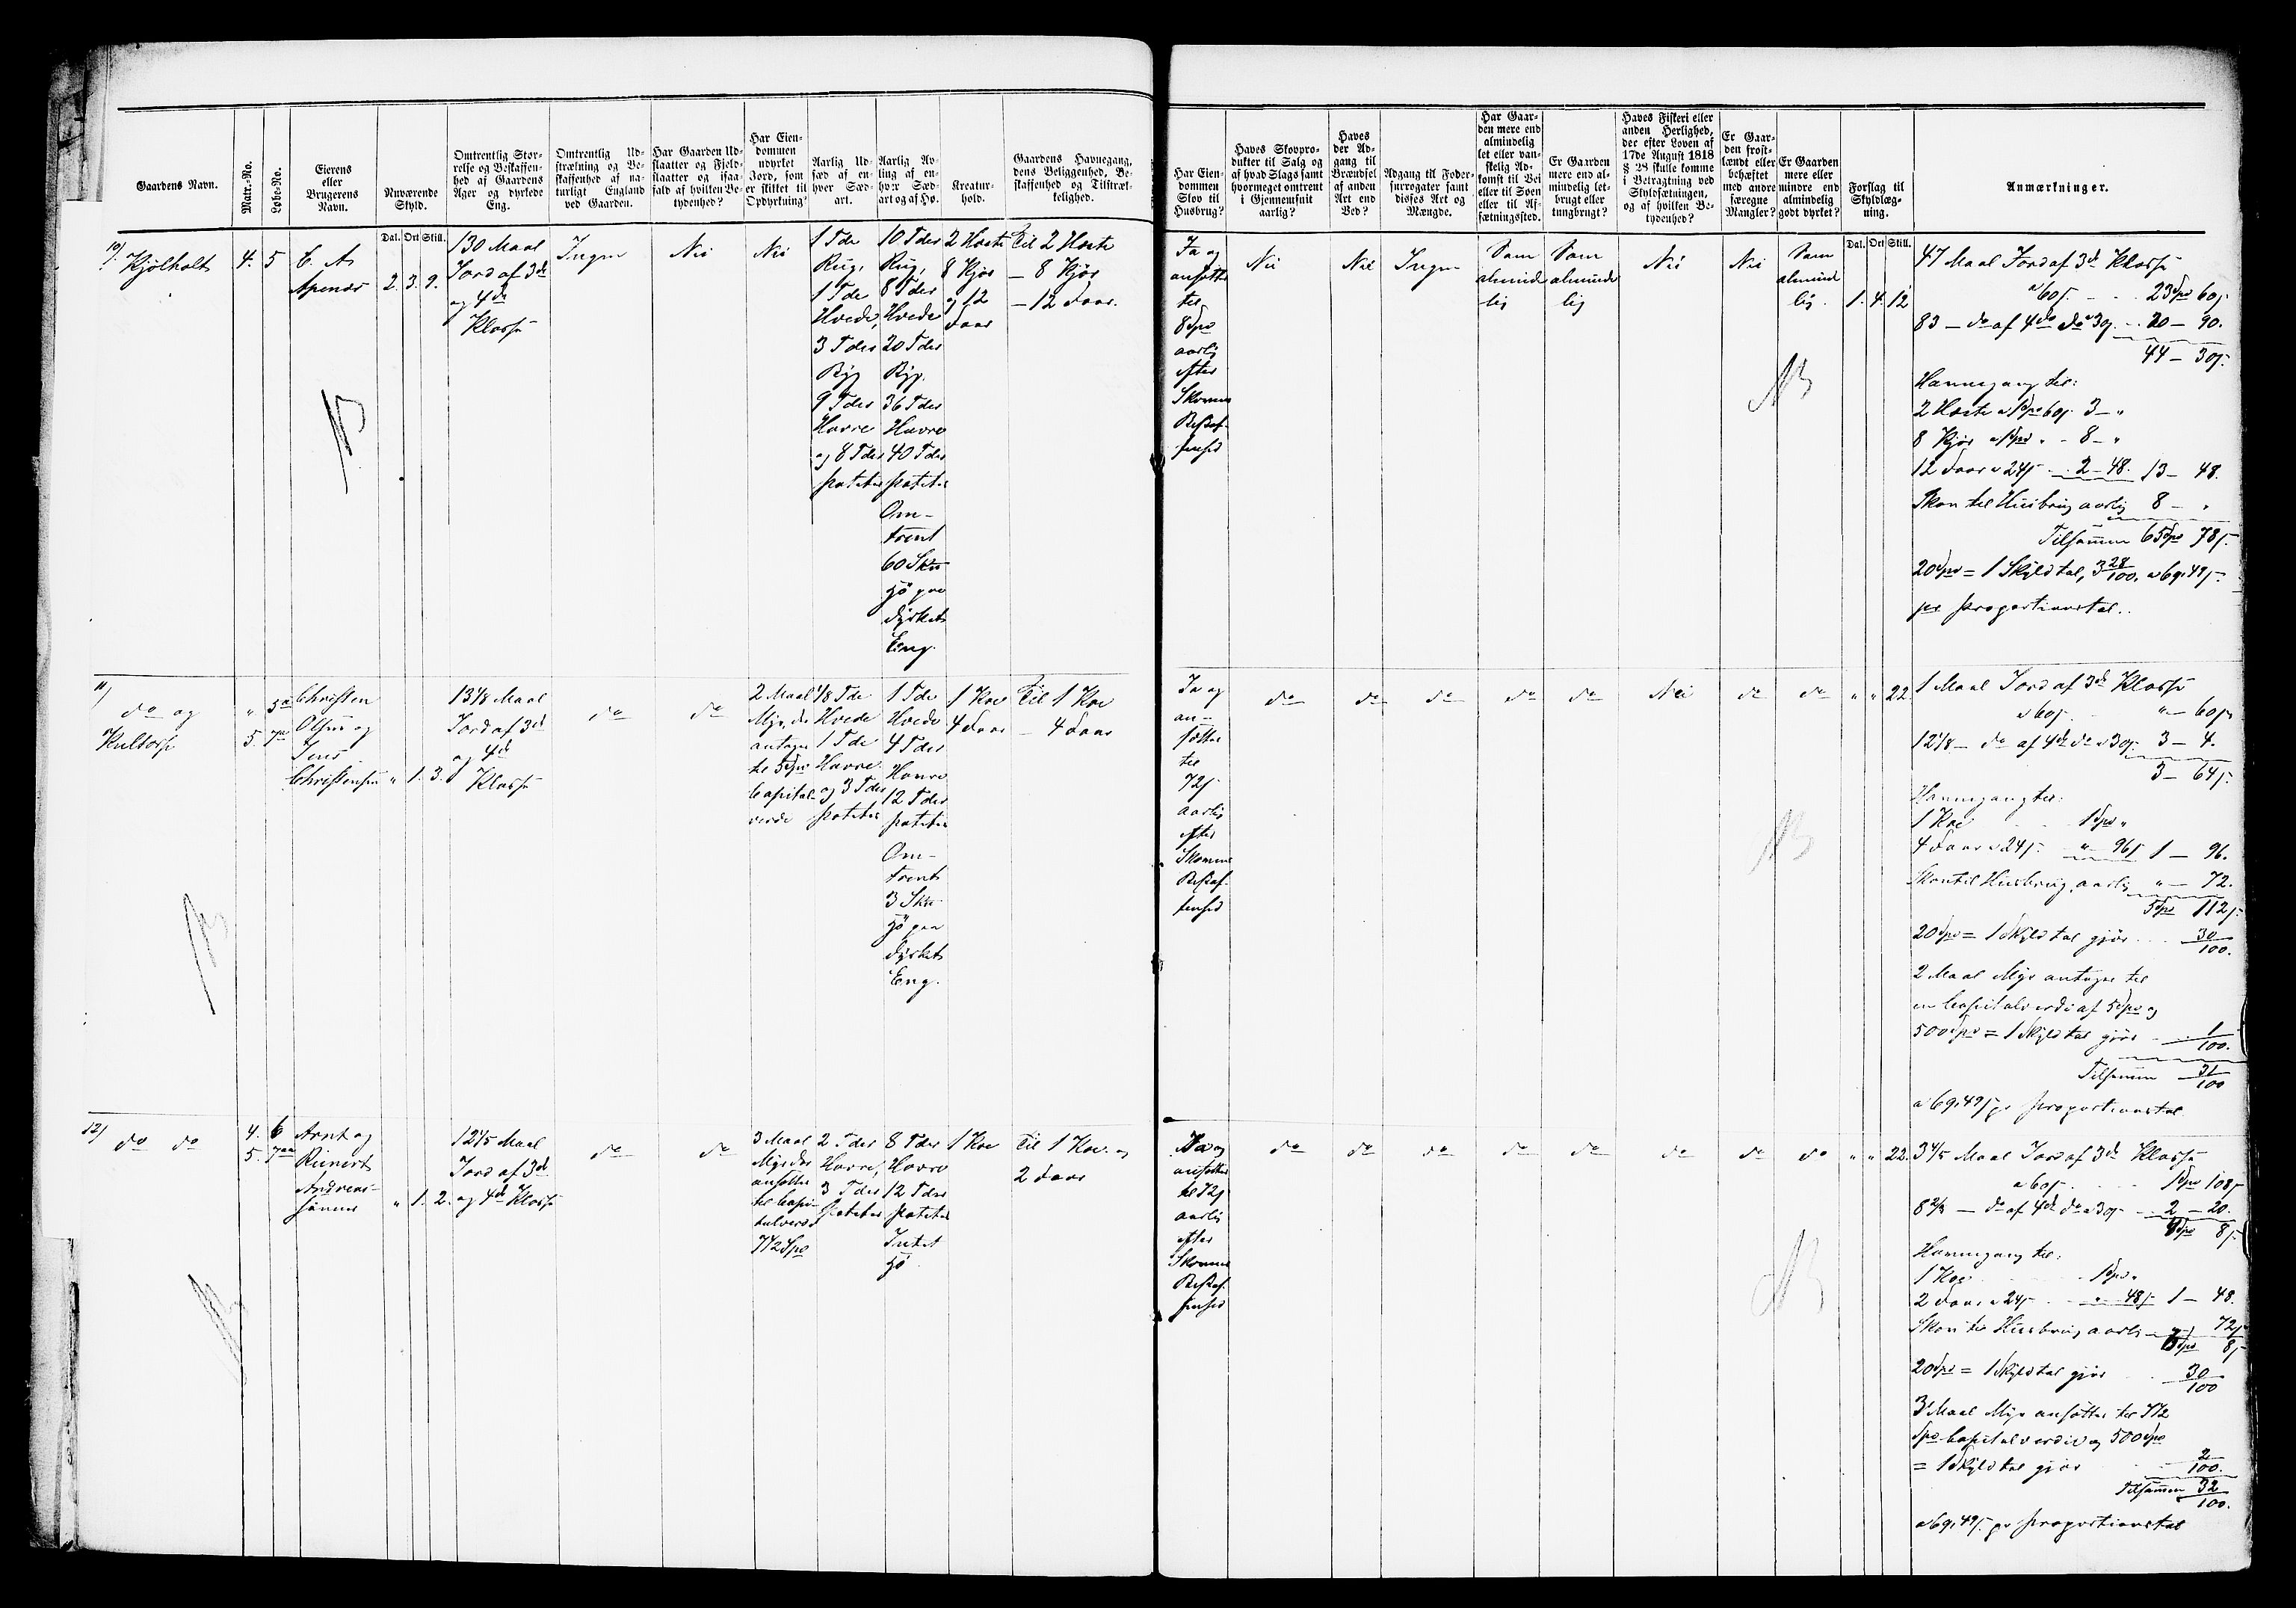 Gaardens Navn.
Matr.-No.
Løbe-No.
Eierens
eller
Brugerens
Navn.
Nuværende
Skyld.
Dal. Ort Skill.
Omtrentlig Stør-
relse og Beskaffen-
hed af Gaardens
Ager og dyrkede
Eng.
Omtrentlig Ud-
strækning og Be-
skaffenhed af na-
turligt England
ved Gaarden.
Har Gaarden Ud-
slaatter og Fjeld-
slaatter og isaa-
fald af hvilken Be-
tydenhed?
Har Eien-
dommen
udyrket
Jord, som
er skikket til
Opdyrkning?
Aarlig Ud-
sæd af en-
hver Sæd-
art.
Aarlig Av-
ling af en-
hver Sæd-
art og af Hø.
Kreatur-
hold.
Gaardens Havnegang,
dens Beliggenhed, Be-
skaffenhed og Tilstræk-
kelighed.
Har Eien-
dommen
Skov til
Husbrug?
Haves Skovpro-
dukter til Salg og
af hvad Slags samt
hvormeget omtrent
i Gjennemsnit
aarlig?
Haves
der Ad-
gang til
Brændsel
af anden
Art end
Ved?
Adgang til Foder-
surrogater samt
disses Art og
Mængde.
Har Gaar-
den mere end
almindelig
let eller van-
skelig Ad-
komst til Vei
eller til Søen
eller til Af-
sætningssted.
Er Gaarden
mere end al-
mindelig let-
brugt eller
tungbrugt?
Haves Fiskeri eller
anden Herlighed,
der efter Loven af
17de August 1818
§ 28 skulle komme
i Betragtning ved
Skyldsætningen,
og af hvilken Be-
tydenhed?
Er Gaar-
den frost-
lændt eller
behæftet
med andre
særegne
Mangler?
Er Gaarden
mere eller
mindre end
almindelig
godt dyrket?
Forslag til
Skyldlæg-
ning.
Dal. Ort Skill.
Anmærkninger.
10/
Kjølholt
4. 5
C. A.
Apenæs 2. 3. 9.
130 Maal
Jord af 3die
og 4de
Klasse
Ingen
Nei
Nei
1 Tde
Rug,
1 Tde
Hvede,
3 Tder
Byg
9 Tder
Havre
og 8 Tder
Poteter
10 Tder
Rug,
8 Tder
Hvede
20 Tder
Byg.
36 Tder
Havre
40 Tder
Poteter
Om-
trent
60 Sku
Hö paa
dyrket
Eng.
2 Heste
8 Kjør
og 12
Faar
Til 2 Heste
— 8 Kjør
— 12 Faar.
Ja og
ansættes
til
8 Spd
aarlig
efter
Skovens
Beskaf-
fenhed
Nei
Nei
Ingen
Som
almind
lig
Som
almind
lig
Nei
Nei
Som
almind
lig.
1. 4. 12
47 Maal Jord af 3die Klasse
a 60 s. 23 Spd 60 s.
83 — do af 4de do a 30 s. 20 — 90.
44 — 30 s.
Havnegang til:
2 Heste a 1 Spd 60 s. 3 — "
8 Kjør a 1 Spd " - 8 — "
12 Faar a 24 s — 2 — 48. 13 — 48.
Skov til Husbrug aarlig 8 — "
Tilsammen 65 Spd 78 s.
20 Spd = 1 Skyldtal, 3 28/100. a 69,49 s.
pr Proportionstal.
11/
do og
Kultorp
" 5a
5. 7
Christen
Olsen og
Jens
Christensen " 1. 3.
13 1/8 Maal
Jord af 3die
og 4de
Klasse
do
do
2 Maal
Myr, der
antages
til 5 Spd
Capital-
verdi
1/8 Tde
Hvede
1 Tde
Havre
og 3 Tder
Poteter
1 Tde
Hvede
4 Tder
Havre
12 Tder
Poteter
Om-
trent
3 Sku
Hö paa
dyrket
Eng.
1 Koe
4 Faar
Til 1 Koe
— 4 Faar
Ja og
an-
sættes
til
72 s
aarlig
efter
Skovens
Beskaf-
fenhed
do
do
do
do
do
Nei
do
do
" " 22.
1 Maal Jord af 3die Klasse
a 60 s. " — 60 s.
12 1/8 — do af 4de do a 30 s. 3 — 4.
3 — 64 s.
Havnegang til:
1 Koe 1 Spd "
4 Faar a 24 s. " — 96 s 1 — 96.
Skov til Husbrug aarlig " — 72.
5 Spd 112 s.
20 Spd = 1 Skyldtal gjør 30/100.
2 Maal Myr antages til
en Capitalverdi af 5 Spd og
500 Spd = 1 Skyldtal gjør 1/100.
Tilsammen 31/100
a 69,49 s pr Proportionstal
12/
do do
4. 6
5. 7
Arnt og
Reinert
Andreas-
sønner " 1. 2.
12 1/5 Maal
Jord af 3die
og 4de Klasse
do
do
3 Maal
Myr der
ansættes
til Capi-
talverdi
7 1/2 Spd
2 Tder
Havre,
3 Tder
Poteter
8 Tder
Havre
12 Tder
Poteter
Intet
Hö
1 Koe
Til 1 Koe og
2 Faar
Ja og
ansættes
til 72 s
aarlig
efter
Skovens
Beskaf-
fenhed
do
do
do
do
do
do
do
do
" " 22.
3 4/5 Maal Jord af 3die Klasse
a 60 s. 1 Spd 108 s
8 2/3 — do af 4de do a 30 s — 2 — 20.
4 Spd 8 s.
Havnegang til:
1 Koe 1 Spd "
2 Faar a 24 s " — 48 s 1 — 48.
Skov til Husbrug aarlig 72 s
6 Spd 8 s
20 Spd = 1 Skyldtal gjør 30/100
3 Maal Myr ansættes til 7 1/2
Spd Capitalverdi og 500 Spd
= 1 Skyldtal gjør 2/100.
Tilsammen 32/100.
a 69,49 s. pr Proportionstal